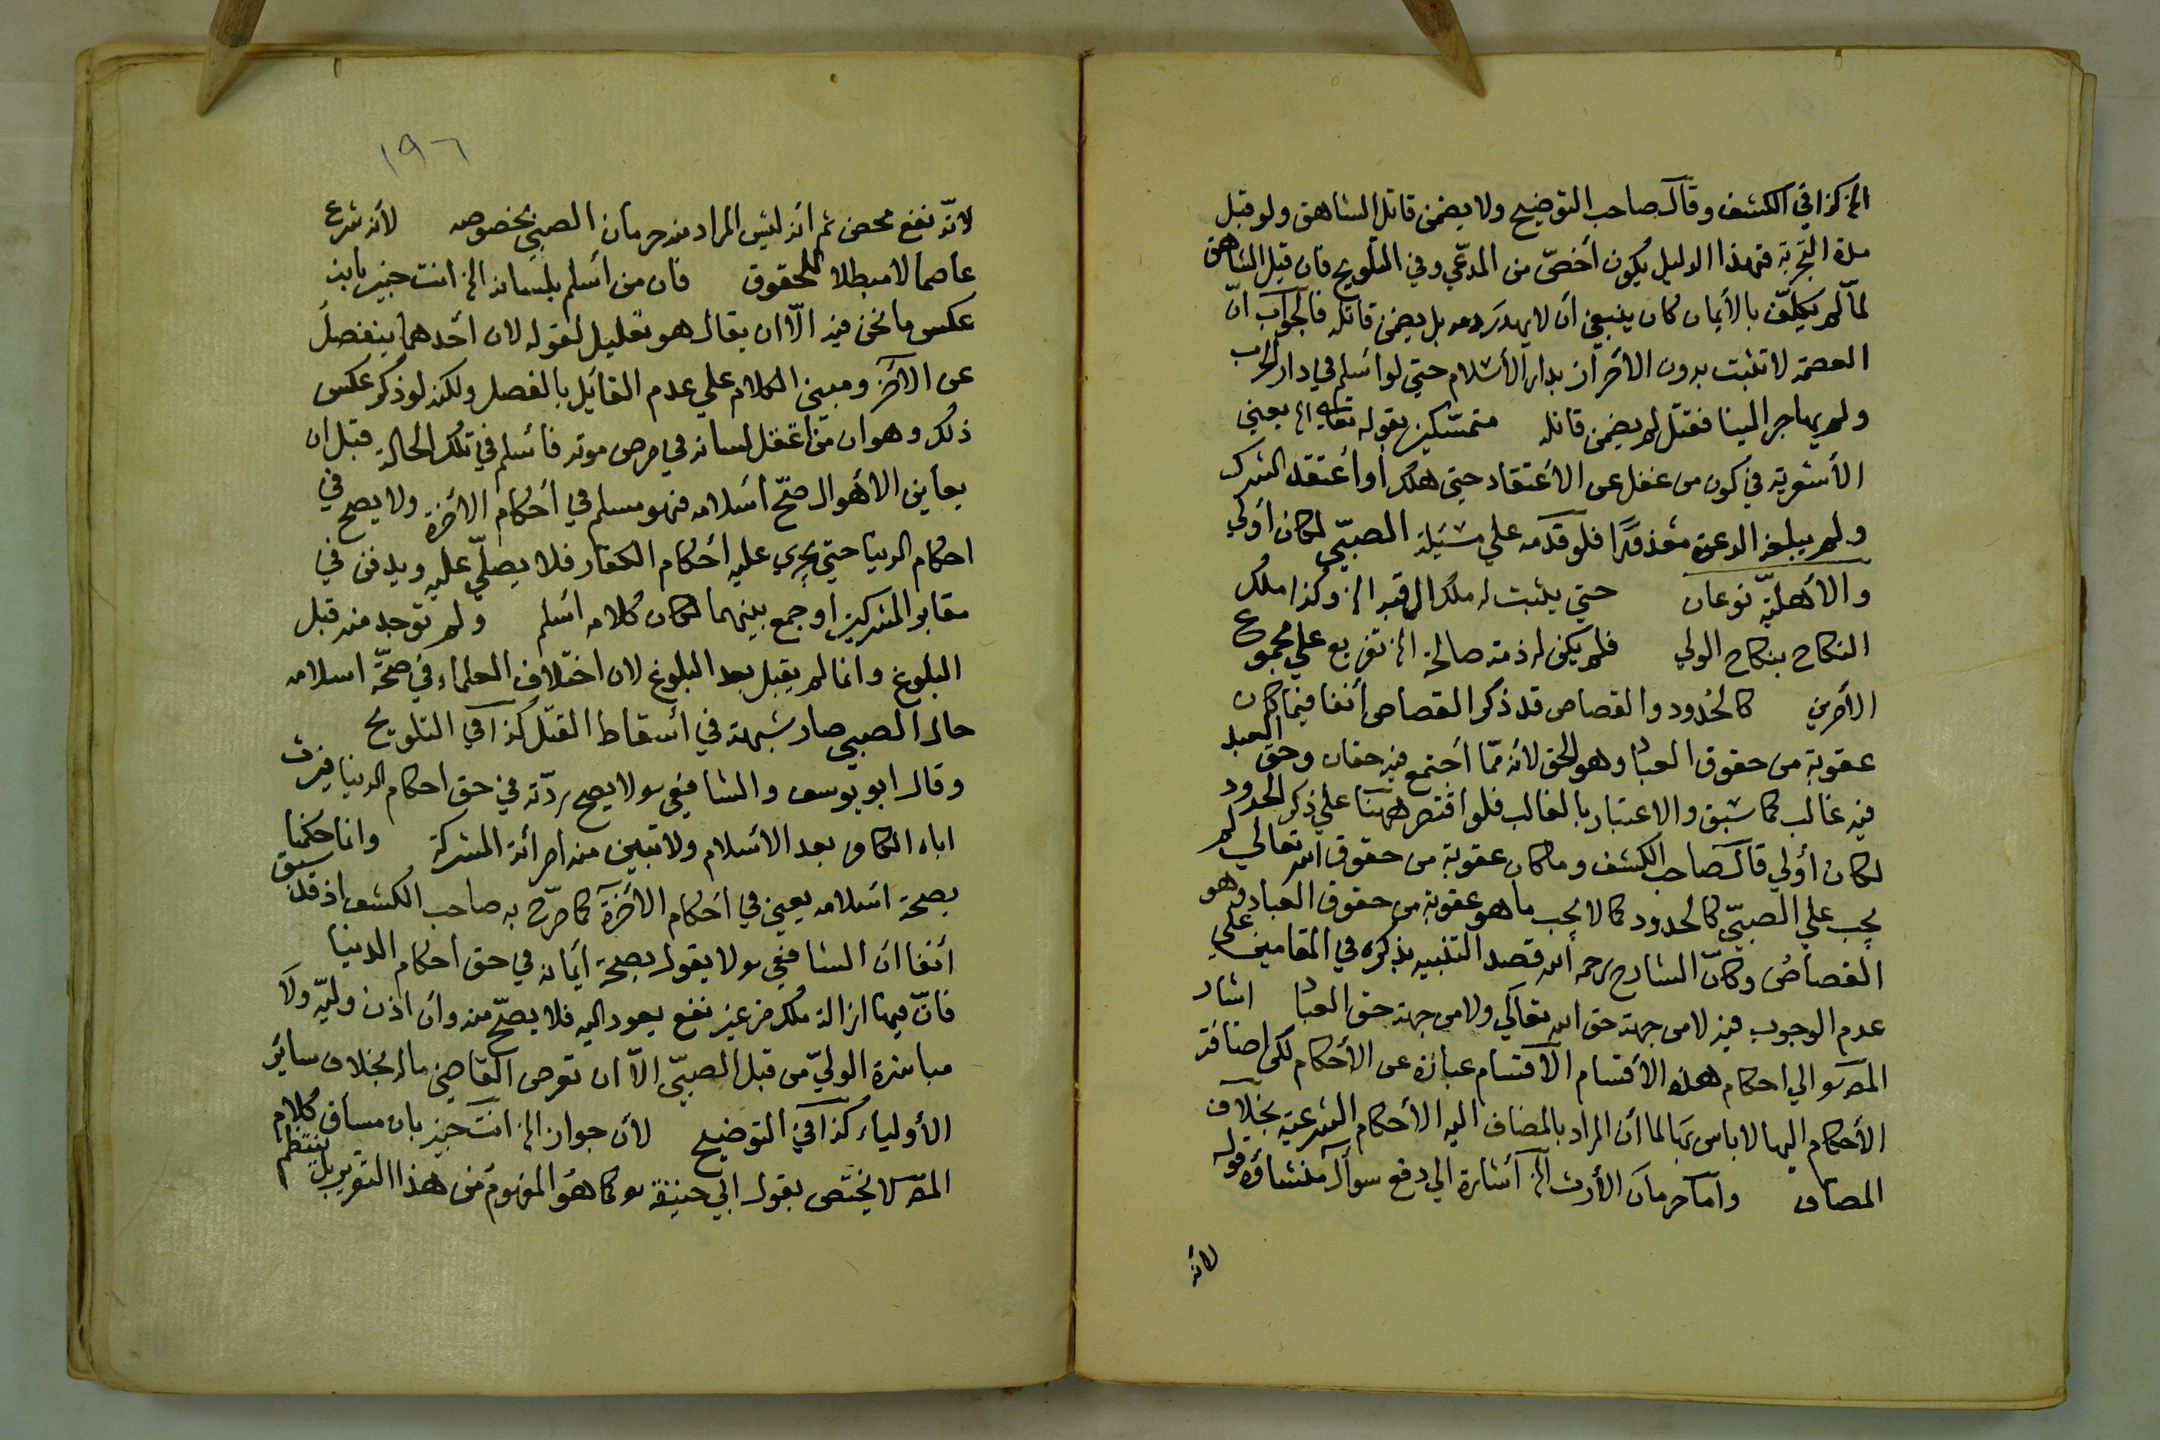 الخ كذا في الكشف وقال صاحب التوضيح ولا يضمن قاتل الشاهق ولو قبل
مدة التجربة فهذا الدليل يكون أخصّ من المدّعي وفي التلويح فان قيل الشاهق
لمّا لم يكلّف بالأيمان كان ينبغي أن لا يهدر دمه بل يضمن قاتله فالجواب انّ
العصمة لا تثبت بدون الاحراز بدار الأسلام حتي لو اسلم في دار الحرب
ولم يهاجر الينا فقتل لم يضمن قاتله متمسّكين بقوله تعالي الخ يعني
الأشعرية في كون من غفل عن الاعتقاد حتي هلك أو أعتقد الشرك
ولم يبلغه الدعوة معذورًا فلو قدّمه علي مسئلة الصبيّ لكان أولي
والأهليّة نوعان حتي يثبت له ملك الرقبة الخ وكذا ملك
النكاح بنكاح الولي فلم يكن له ذمة صالحة الخ تفريع علي مجموع
الأمرين كالحدود والقصاص قد ذكر القصاص أنفا فيما كان
عقوبة من حقوق العباد وهو الحق لأنه ممّا أجتمع فيه حقان وحق العبد
فيه غالب كما سبق والاعتبار بالغالب فلو اقتصر ههنا علي ذكر الحدود
لكان أولي قال صاحب الكشف وما كان عقوبة من حقوق الله تعالي لم
يجب علي الصبيّ كالحدود كما لا يجب ما هو عقوبة من حقوق العباد وهو
القصاص وكانّ الشارح رحمه الله قصد التنبيه بذكره في المقامين علي
عدم الوجوب فيه لا من جهة حق الله تعالي ولا من جهة حق العباد اشار
المصـ سو الي احكام هذه الأقسام الأقسام عبارة عن الأحكام لكن اضافة
الأحكام اليها لا باس بها لما أن المراد بالمضاف اليه الأحكام الشرعية بخلاف
المضاف وأما حرمان الأرث الخ أشارة الي دفع سوال منشاؤه قوله
لانه
١٩٦
لانّه نفع محض ثم انه ليس المراد منه حرمان الصبي بخصوصه لأنه شرع
عاصما لا مبطلا للحقوق فان من أسلم بلسانه الخ انت خبير بانه
عكس ما نحن فيه الّا ان يقال هو تعليل لقوله لان احدهما ينفصل
عن الآخر ومبني الكلام علي عدم القائل بالفصل ولكنه لو ذكر عكس
ذلك وهو ان من اعتقل لسانه في مرض موته فأسلم في تلك الحالة قبل ان
يعاين الاهوال صحّ اسلامه فهو مسلم في أحكام الأخرة ولا يصح في
احكام الدنيا حتي يجري عليه أحكام الكفار فلا يصلّي عليه ويدفن في
مقابر المشركين او جمع بينهما لكان كلامه اسلم ولم توجد منه قبل
البلوغ وانما لم يقبل بعد البلوغ لان اختلاف العلماء في صحّة اسلامه
حال الصبي صار شبهة في أسقاط القتل كذا في التلويح
وقال ابو يوسف والشافعي سو لا يصح ردّته في حق احكام الدنيا فيرث
اباه الكافر بعد الأسلام ولا تبين منه امرأته المشركة وانما حكمنا
بصحة اسلامه يعني في احكام الأخرة كما صرّح به صاحب الكشف اذ قد سبق
أنفا ان الشافعي سو لا يقول بصحة أيمانه في حق احكام الدنيا
فانّ فيها ازالة ملك من غير نفع يعود اليه فلا يصحّ منه وان اذن وليّه ولا
مباشرة الوليّ من قبل الصبيّ الّا ان تقرض القاضي ماله بخلاف سائر
الأولياء كذا في التوضيح لأن جوازه الخ انت خبير بان مساق كلام
المصـ لا يختص بقول ابي حنيفة سو كما هو المفهوم من هذا التقرير بل ينتظم